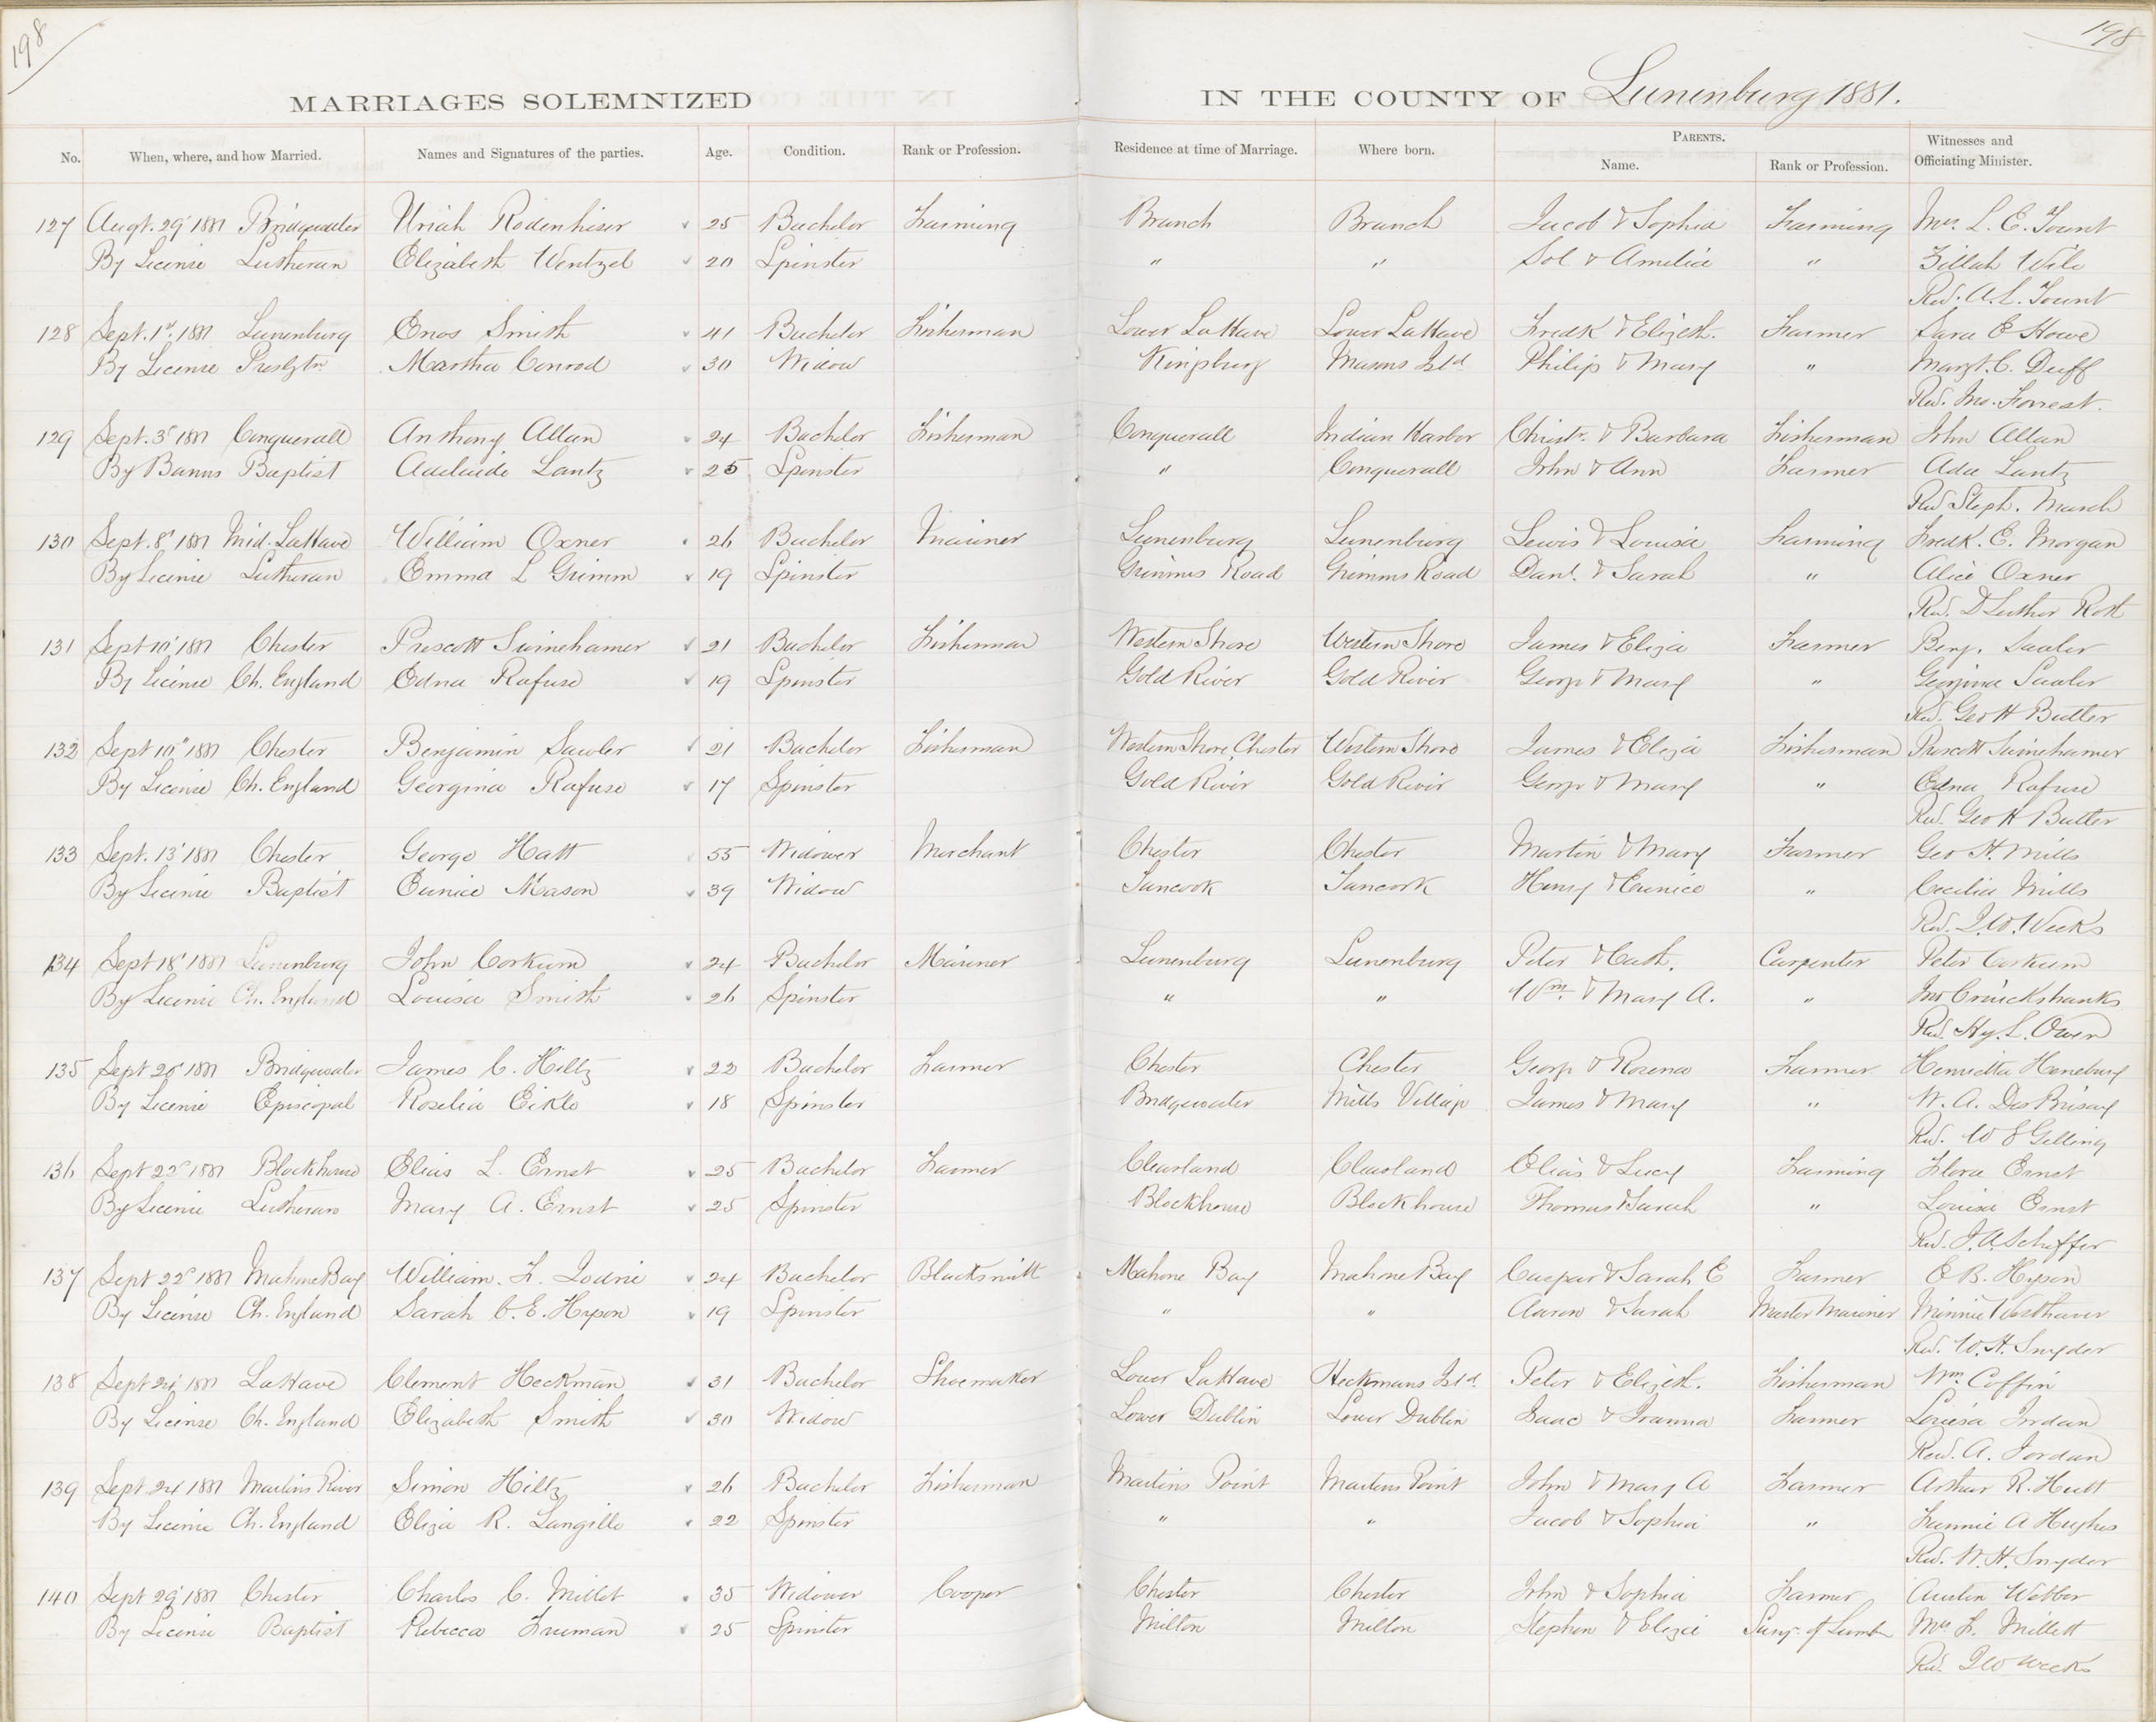 198
198
MARRIAGES SOLEMNIZED IN THE COUNTY OF Lunenburg 1881.
No. When, where, and how Married. Names and Signatures of the parties. Age. Condition. Rank or Profession. Residence at time of Marriage. Where born. PARENTS. Name. Rank or Profession. Witnesses and Officiating Minister.
127 Augt. 29' 1881 Bridgewater Uriah Rodenhiser 25 Bachelor Farming Branch Branch Jacob & Sophia Farming Mrs. L. E. Yount
By License Lutheran Elizabeth Wentzel 20 Spinster " " Sol & Amelia " Zillah Wile
Rev. A. L. Yount
128 Sept. 1st. 1881 Lunenburg Enos Smith 41 Bachelor Fisherman Lower LaHave Lower LaHave Fredk & Elizth. Farmer Sara E Howe
By License Presbytn Martha Conrod 30 Widow Kingsburg Masons Isld Philip & Mary " Margt. C. Duff
Rev. Jno. Forrest.
129 Sept. 3d 1881 Conquerall Anthony Allan 24 Bachelor Fisherman Conquerall Indian Harbor Christr. & Barbara Fisherman John Allan
By Banns Baptist Adelaide Lantz 25 Spinster " Conquerall John & Ann Farmer Ada Lantz
Rev Steph. March
130 Sept. 8' 1881 Mid. LaHave William Oxner 26 Bachelor Mariner Lunenburg Lunenburg Lewis & Louisa Farming Fredk. E. Morgan
By License Lutheran Emma L Grimm 19 Spinster Grimms Road Grimms Road Danl. & Sarah " Alice Oxner
Rev. D Luther Roth
131 Sept 10' 1881 Chester Prescott Swinehamer 21 Bachelor Fisherman Western Shore Western Shore James & Eliza Farmer Benj. Sawler
By License Ch. England Edna Rafuse 19 Spinster Gold River Gold River George & Mary " Georgina Sawler
Rev. Geo H Butler
132 Sept 10" 1881 Chester Benjamin Sawler 21 Bachelor Fisherman Western Shore, Chester Western Shore James & Eliza Fisherman Prescott Swinehamer
By License Ch. England Georgina Rafuse 17 Spinster Gold River Gold River George & Mary " Edna Rafuse
Rev. Geo H Butler
133 Sept. 13' 1881 Chester George Hatt 55 Widower Merchant Chester Chester Martin & Mary Farmer Geo H. Mills
By License Baptist Eunice Mason 39 Widow Tancook Tancook Henry & Eunice " Cecilia Mills
Rev. I. W. Weeks
134 Sept 18' 1881 Lunenburg John Corkum 24 Bachelor Mariner Lunenburg Lunenburg Peter & Cath. Carpenter Peter Corkum
By License Ch. England Louisa Smith 26 Spinster " " Wm. & Mary A. " Jno Cruickshanks
Rev. Hy. L. Owen
135 Sept 20' 1881 Bridgewater James C. Hiltz 22 Bachelor Farmer Chester Chester George & Rosena Farmer Henrietta Heneburg
By License Episcopal Roselia Eikle 18 Spinster Bridgewater Mills Village James & Mary " W. A. Des Brisay
Rev. W E Gelling
136 Sept 22d 1881 Blockhouse Elias L. Ernst 25 Bachelor Farmer Clearland Clearland Elias & Lucy Farming Flora Ernst
By License Lutheran Mary A. Ernst 25 Spinster Blockhouse Blockhouse Thomas & Sarah " Louisa Ernst
Rev. J. A. Scheffer
137 Sept 22d 1881 Mahone Bay William. F. Iodrie 24 Bachelor Blacksmith Mahone Bay Mahone Bay Caspar & Sarah E Farmer E B. Hyson
By License Ch. England Sarah C. E. Hyson 19 Spinster " " Aaron & Sarah Master Mariner Minnie Westhaver
Rev. W. H. Snyder
138 Sept 24' 1881 LaHave Clement Heckman 31 Bachelor Shoemaker Lower LaHave Heckmans Isld. Peter & Elizth. Fisherman Wm Coffin
By License Ch. England Elizabeth Smith 30 Widow Lower Dublin Lower Dublin Isaac & Joanna Farmer Louisa Jordan
Rev. A. Jordan
139 Sept. 24 1881 Martins River Simon Hiltz 26 Bachelor Fisherman Martins Point Martins Point John & Mary A Farmer Arthur R. Hutt
By License Ch. England Eliza R. Langille 22 Spinster " " Jacob & Sophia " Fannie A Hughes
Rev. W. H. Snyder
140 Sept 29' 1881 Chester Charles C. Millet 35 Widower Cooper Chester Chester John & Sophia Farmer Austin Webber
By License Baptist Rebecca Fruman 25 Spinster Milton Milton Stephen & Eliza Survr. of Lumber Mrs F. Millett
Rev. I W Weeks